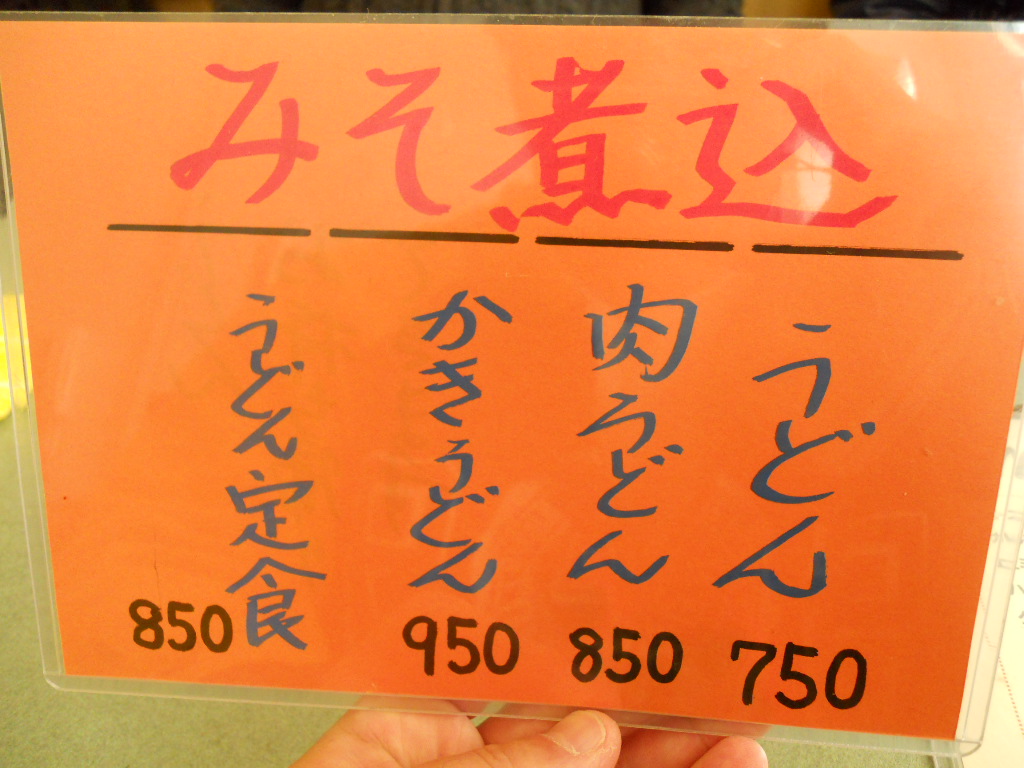 みそ煮込
うどん
750
肉うどん
850
かきうどん
950
うどん定食
850